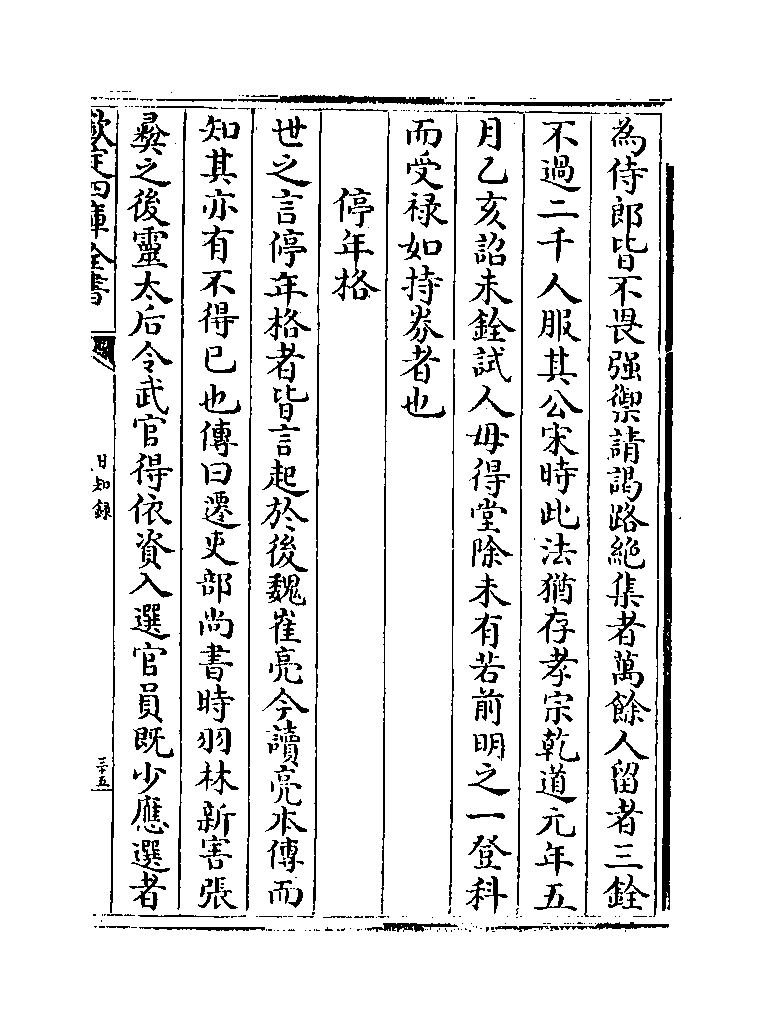 為侍郎皆不畏强禦請謁路絶集者萬餘人留者三銓
不過二千人服其公宋時此法猶存孝宗乾道元年五
月乙亥詔未銓試人毋得堂除未有若前明之一登科
而受禄如持券者也
停年格
世之言停年格者皆言起於後魏崔亮今讀亮本傳而
知其亦有不得已也傳曰遷吏部尚書時羽林新害張
彝之後靈太后令武官得依資入選官員既少應選者
欽定四庫全書
日知錄
三十五